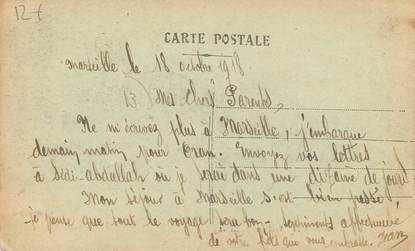 12 t
CARTE POSTALE
Marseille le 18 octobre 1918
13) Mes Chers Parents,
Ne m'écrivez plus à Marseille, j'embarque
demain matin pour Oran. Envoyez vos lettres
à Sidi-abdallah ou je serai dans une dizaine de jours
Mon séjour à Marseille s'est bien passé,
je pense que tout le voyage sera bon. Sentiments affectueux
de votre fils que vous embrasse. Jean